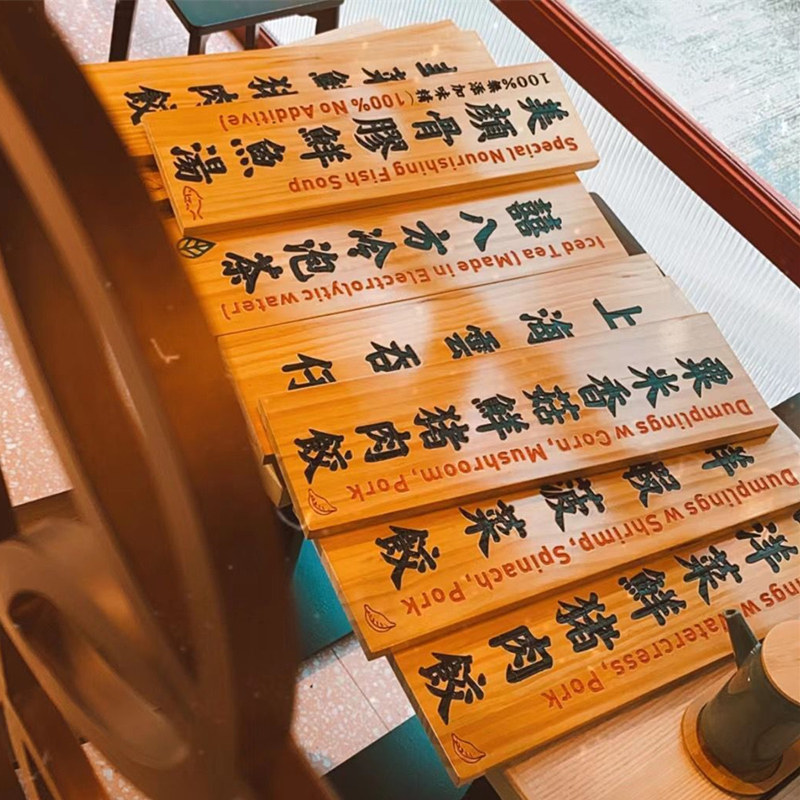 鮮猪肉餃
100%無添加味精(100% No Additive)
美顏骨膠鮮魚湯
Special Nourishing Fish Soup
囍八方冷泡茶
Iced Tea (Made in Electrolytic water)
上 雲吞
粟米香菇鮮猪肉餃
Dumplings w Corn, Mushroom, Pork
鮮蝦菠菜餃
Dumplings w Shrimp, Spinach, Pork
洋菜鮮猪肉餃
w Watercress, Pork